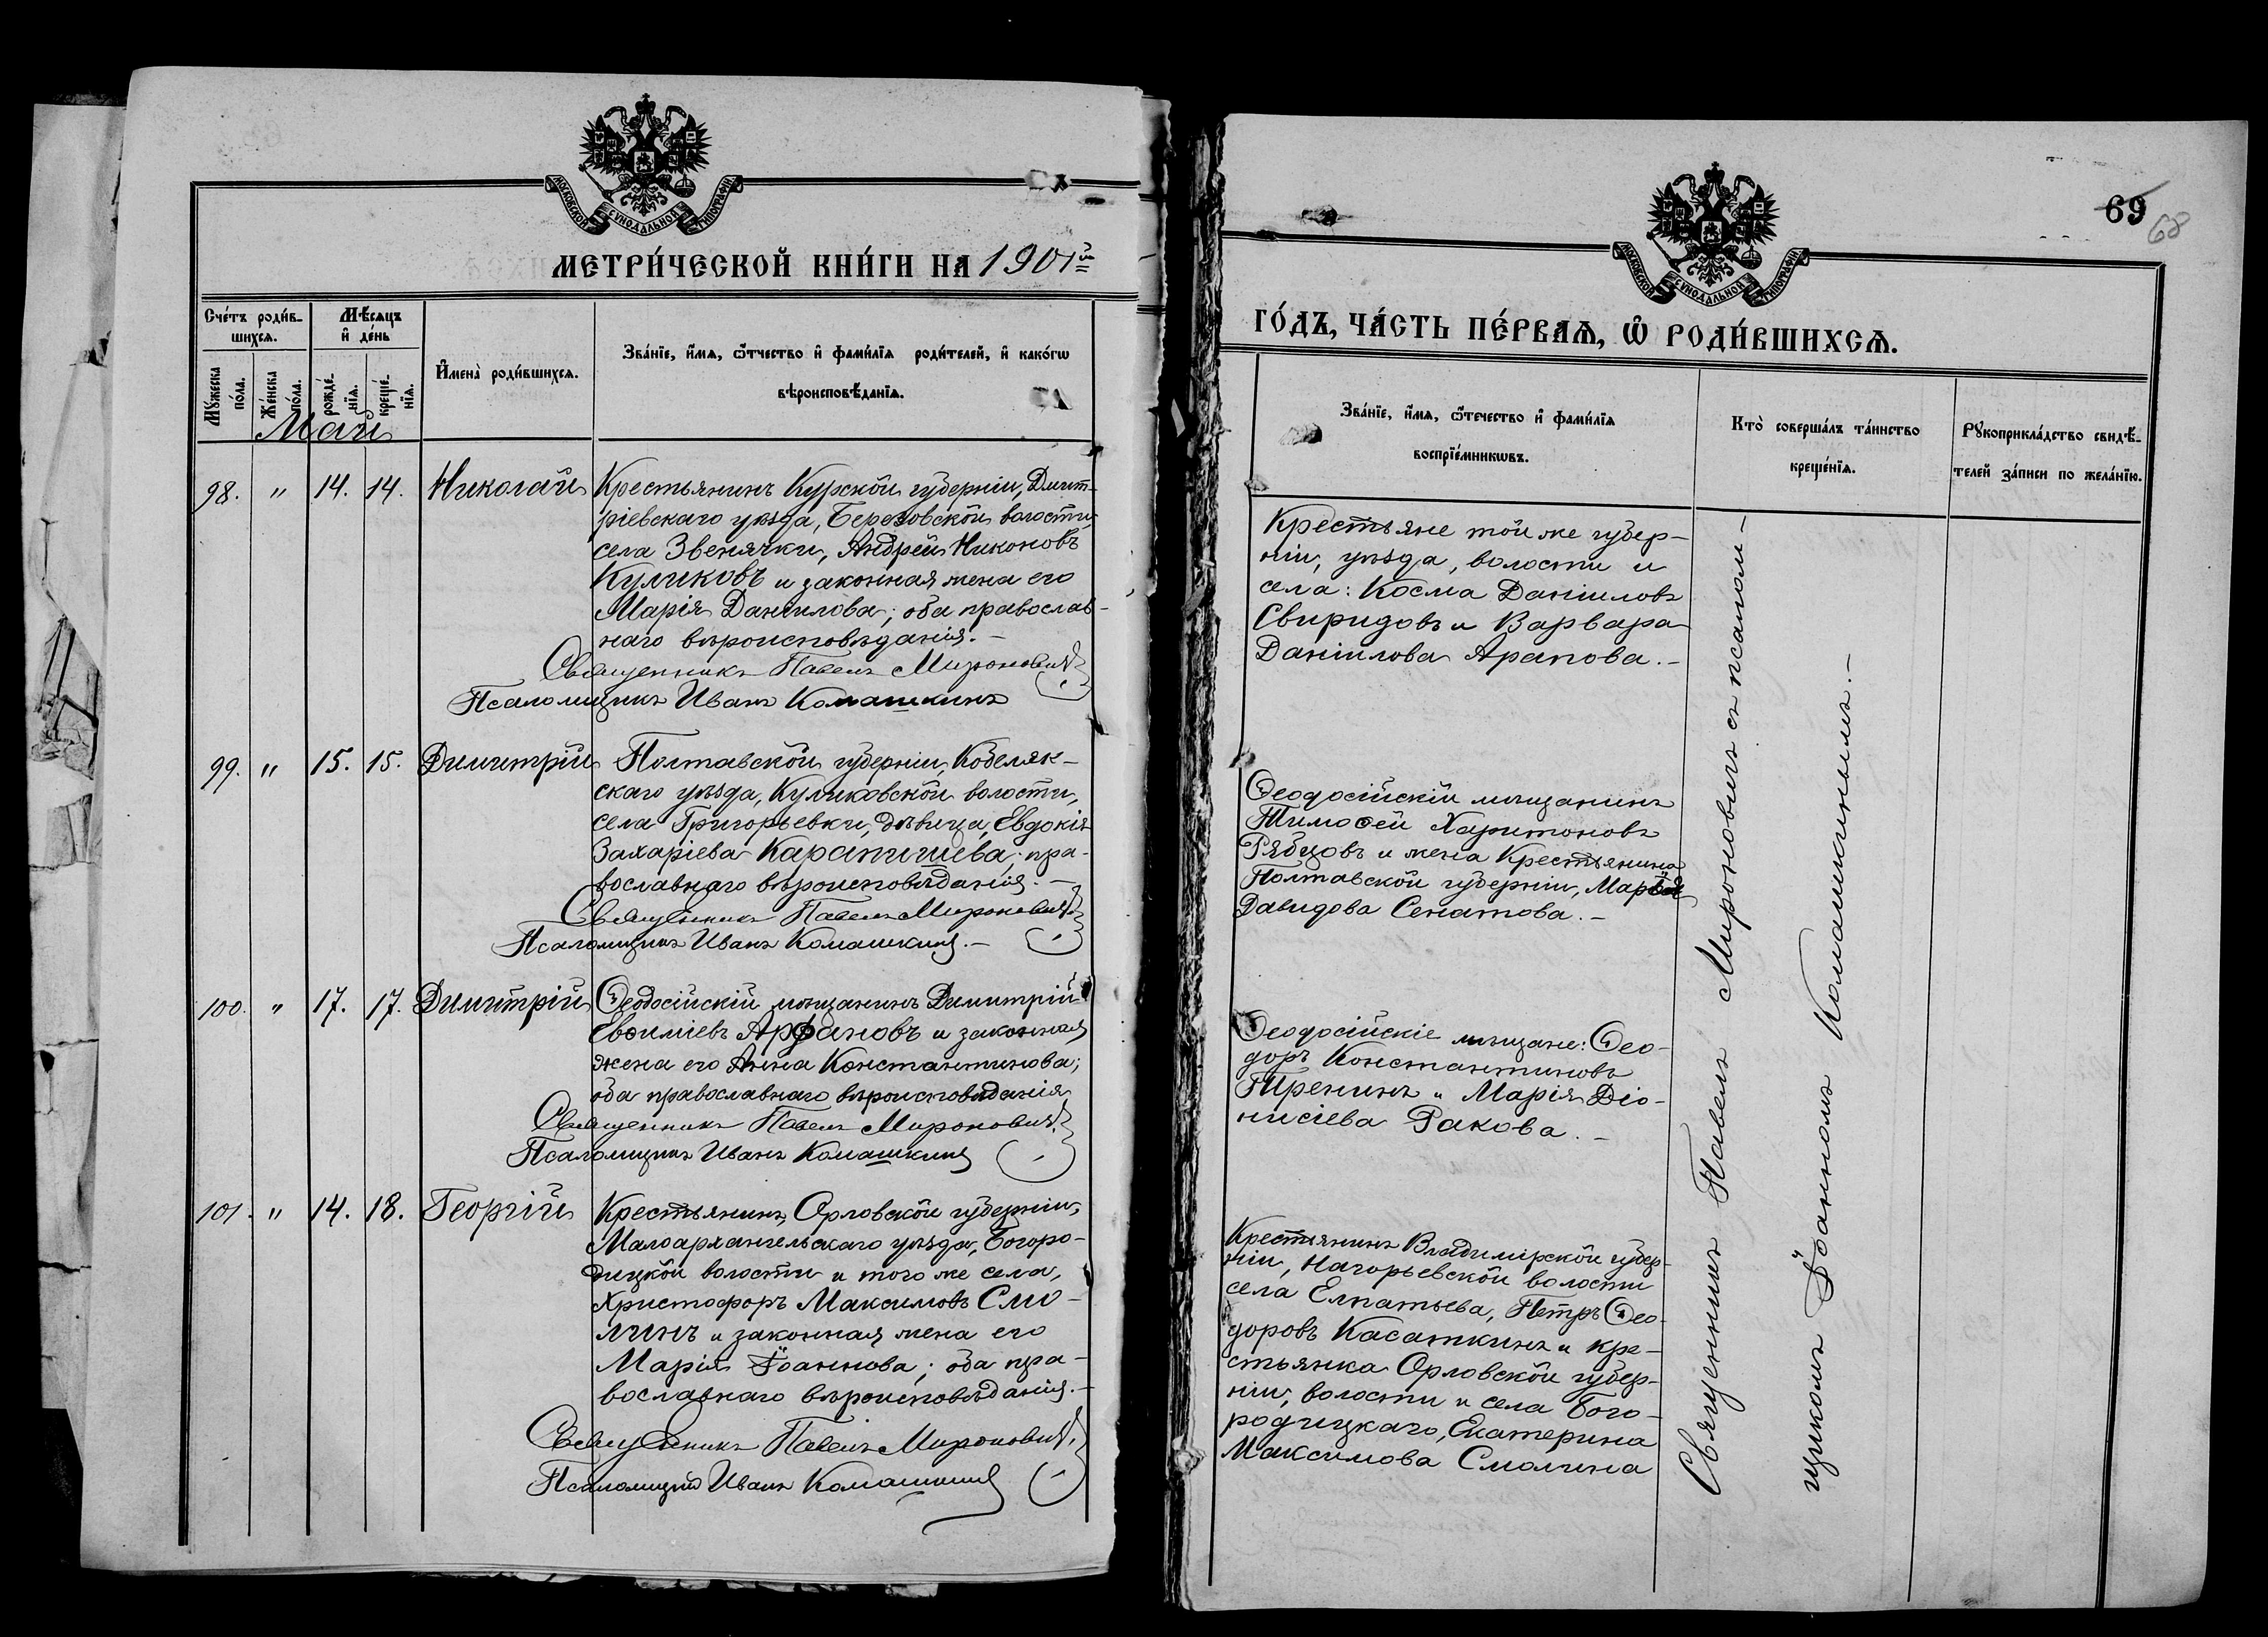 МОСКОВСКОЙ СУНОДАЛЬНОЙ ТИПОГРАФІИ
МЕТРИ́ЧЕСКОЙ КНИ́ГИ НА 1901й
Сче́тъ роди́в-
шихсѧ.
Мѣ́сѧцъ
и҆ де́нь
Мꙋ́жеска
по́ла.
Же́нска
по́ла.
рожде́-
нїѧ.
креще́-
нїѧ.
И҆мена̀ роди́вшихсѧ.
Зва́нїе, и҆́мѧ, ѻ҆́тчество и҆ фами́лїѧ роди́телей, и҆ како́гѡ
вѣроисповѣ́данїѧ.
Май
98. " 14. 14. Николай Крестьянинъ Курской губерніи, Дмит-
ріевскаго уѣзда, Березовской волости,
села Звенячки, Андрей Никоновъ
Куликовъ и законная жена его
Марія Даніилова; оба православ-
наго вѣроисповѣданія.-
Священникъ Павелъ Мироновичъ
Псаломщикъ Иванъ Комашкинъ
99. " 15. 15. Димитрій Полтавской губерніи, Кобеляк-
скаго уѣзда, Куликовской волости,
села Григорьевки, дѣвица, Евдокія
Захаріева Карапишева; пра-
вославнаго вѣроисповѣданія.-
Священникъ Павелъ Мироновичъ
Псаломщикъ Иванъ Комашкинъ.-
100. " 17. 17. Димитрій Ѳеодосійскій мѣщанинъ Димитрій
Евѳиміевъ Арфановъ и законная
жена его Анна Константинова;
оба православнаго вѣроисповѣданія
Священникъ Павелъ Мироновичъ
Псаломщикъ Иванъ Комашкинъ
101. " 14. 18. Георгій Крестьянинъ, Орловской губерніи,
Малоархангельскаго уѣзда, Богоро-
дицкой волости и того же села,
Христофоръ Максимовъ Смо-
линъ и законная жена его
Марія Іоаннова; оба пра-
вославнаго вѣроисповѣданія.-
Священникъ Павелъ Мироновичъ
Псаломщикъ Иванъ Комашкинъ
69
68
МОСКОВСКОЙ СУНОДАЛЬНОЙ ТИПОГРАФІИ
ГО́ДЪ, ЧА́СТЬ ПЕ́РВАѦ, Ѡ҆ РОДИ́ВШИХСѦ.
Зва́нїе, и҆́мѧ, ѻ҆́течество и҆ фами́лїѧ
воспрїе́мникѡвъ.
Кто̀ соверша́лъ та́инство
креще́нїѧ.
Рꙋкоприкла́дство свидѣ́-
телей за́писи по жела́нїю.
Крестьяне той же губер-
ніи, уѣзда, волости и
села: Косма Даніиловъ
Свиридовъ и Варвара
Даніилова Арапова.-
Ѳеодосійскій мѣщанинъ
Тимоѳей Харитоновъ
Рябцовъ и жена Крестьянина
Полтавской губерніи, Марія
Давидова Сенатова.-
Ѳеодосійскіе мѣщане: Ѳео-
доръ Константиновъ
Тиренинъ и Марія Діо-
нисіева Ракова.-
Крестьянинъ Владимирской губер-
ніи, Нагорьевской волости
села Елпатьева, Петръ Ѳео-
доровъ Касаткинъ и кре-
стьянка Орловской губер-
ніи, волости и села Бого-
родицкаго, Екатерина
Максимова Смолина
Священникъ Павелъ Мироновичъ съ псалом-
щикомъ Іоанномъ Комашкинымъ.-